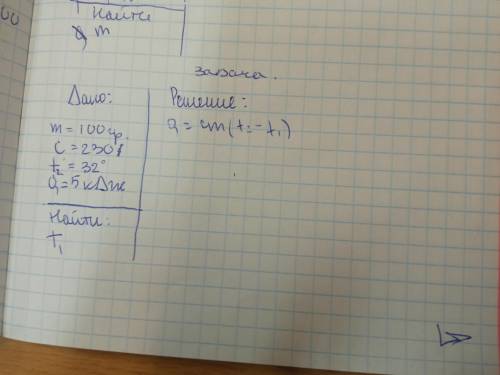 Найти
m
Задача.
Дано:
m = 100 гр.
C = 230
t₂ = 32°
Q = 5 кДж
Найти:
t₁
Решение:
Q = cm(t₂ - t₁)